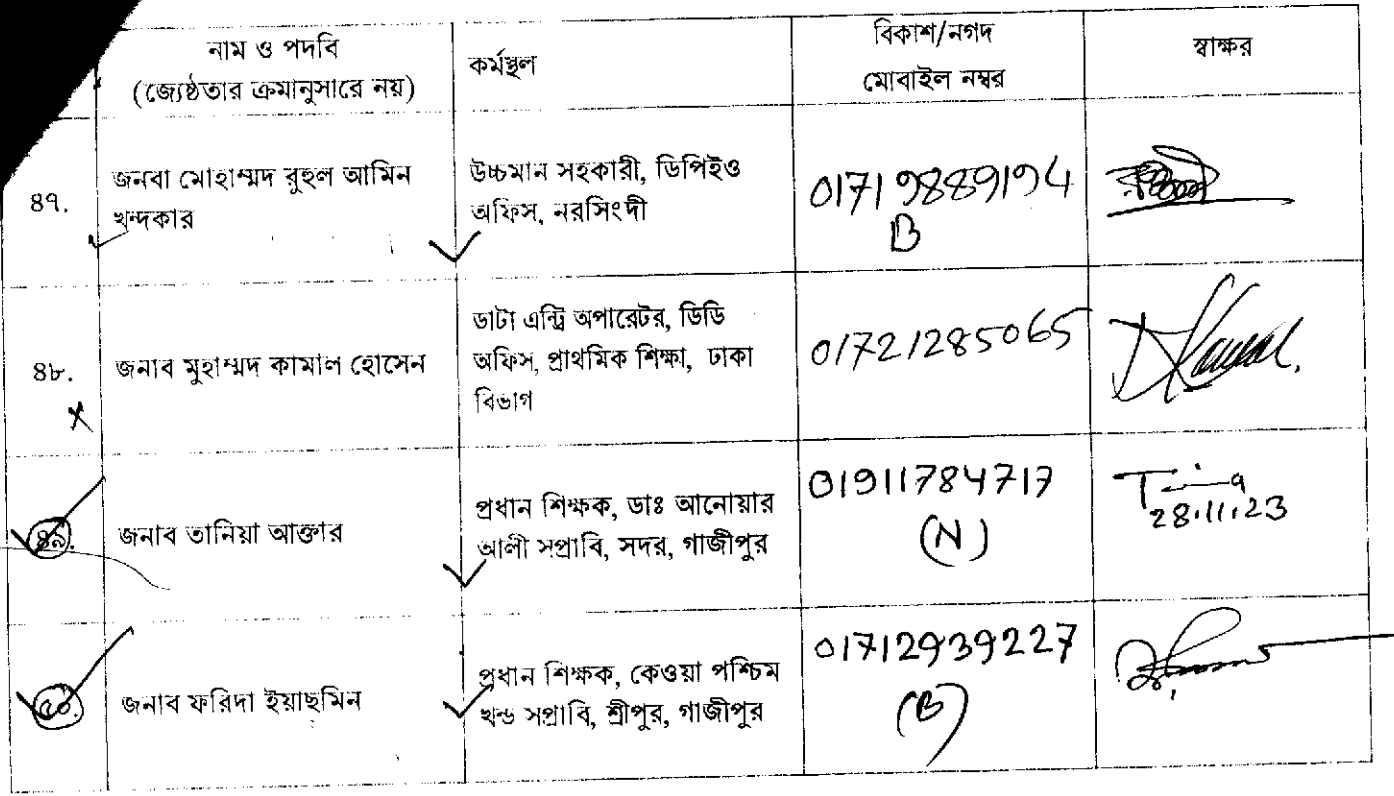 নাম ও পদবি
(জ্যেষ্ঠতার ক্রমানুসারে নয়)
কর্মস্থল
বিকাশ/নগদ
মোবাইল নম্বর
স্বাক্ষর
৪৭.
জনবা মোহাম্মদ রুহুল আমিন
খন্দকার
উচ্চমান সহকারী, ডিপিইও
অফিস, নরসিংদী
01719889194
B
৪৮.
জনাব মুহাম্মদ কামাল হোসেন
ডাটা এন্ট্রি অপারেটর, ডিডি
অফিস, প্রাথমিক শিক্ষা, ঢাকা
বিভাগ
01721285065
৪৯.
জনাব তানিয়া আক্তার
প্রধান শিক্ষক, ডাঃ আনোয়ার
আলী সপ্রাবি, সদর, গাজীপুর
01911784717
(N)
28.11.23
৫০.
জনাব ফরিদা ইয়াছমিন
প্রধান শিক্ষক, কেওয়া পশ্চিম
খন্ড সপ্রাবি, শ্রীপুর, গাজীপুর
01712939227
(B)